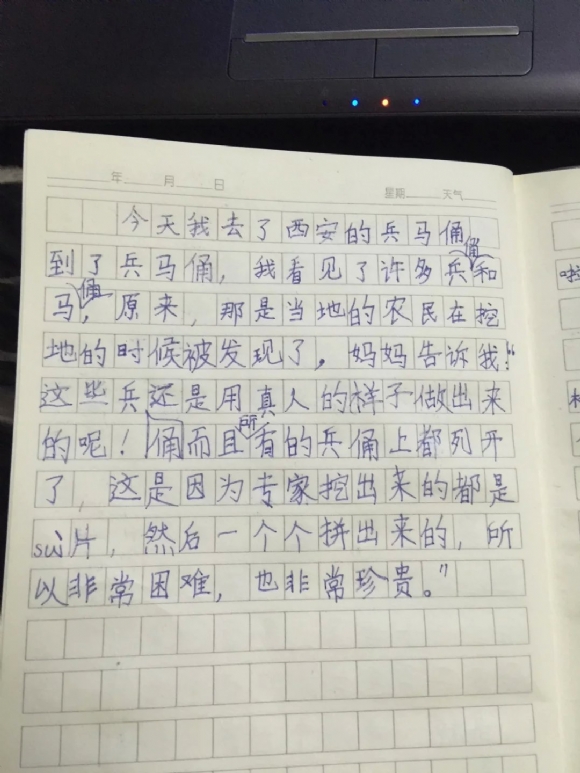 年 月 日 星期 天气
今天我去了西安的兵马俑
到了兵马俑，我看见了许多兵俑和
马俑，原来，那是当地的农民在挖
地的时候被发现了。妈妈告诉我："
这些兵还是用真人的样子做出来
的呢！俑而且所有的兵俑上都列开
了，这是因为专家挖出来的都是
suì片，然后一个个拼出来的，所
以非常困难，也非常珍贵。"